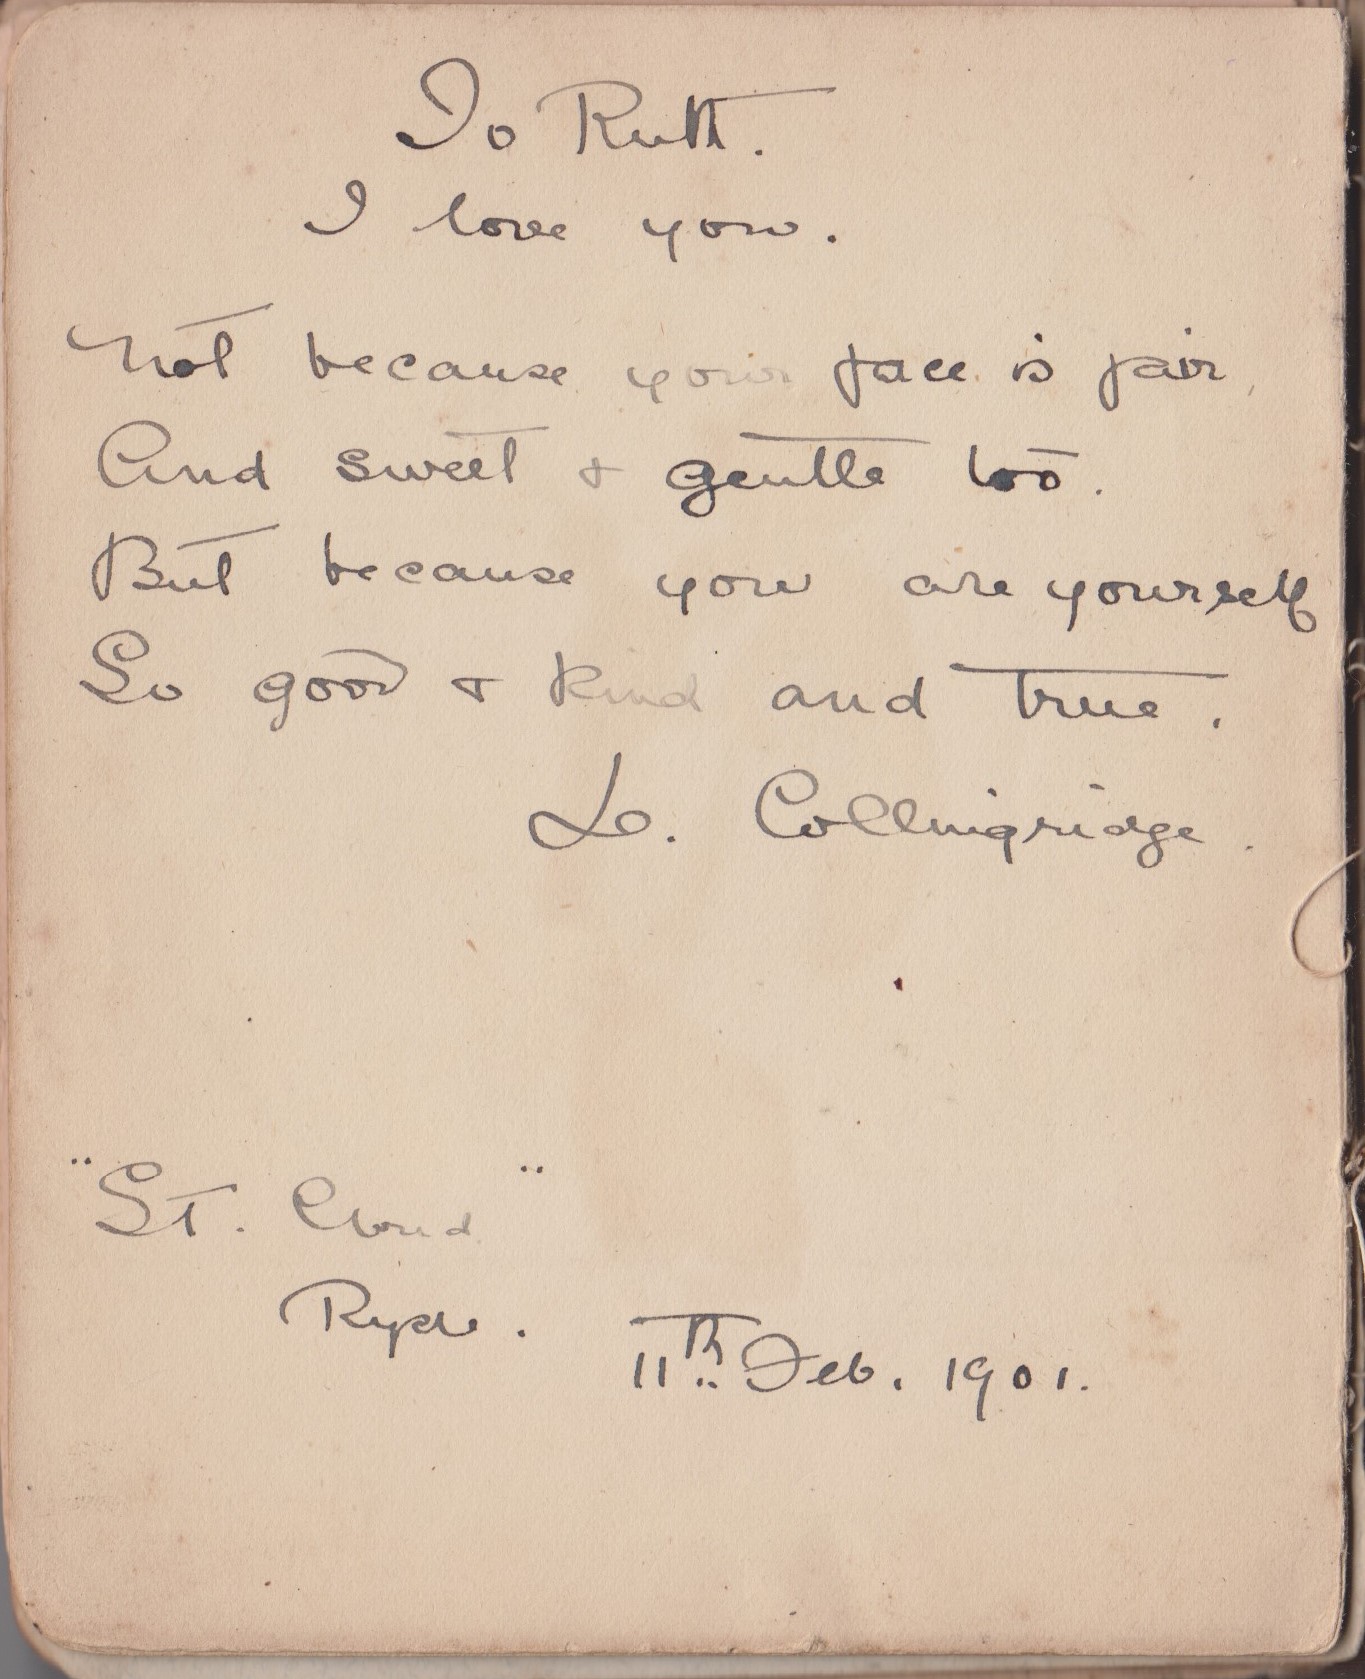 To Ruth.
I love you.
Not because your face is fair,
And sweet & gentle too.
But because you are yourself
So good & kind and true.
L. Collingridge.
"St. Cloud"
Ryde.
11th Feb. 1901.